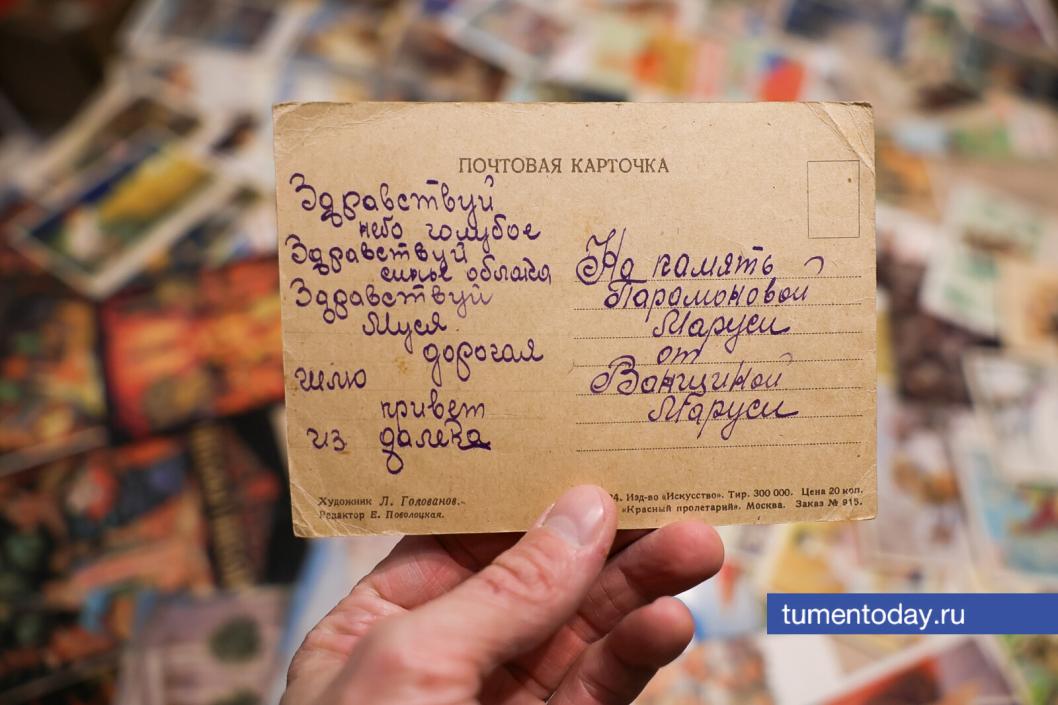 ПОЧТОВАЯ КАРТОЧКА
Здравствуй
небо голубое
Здравствуй
синые облака
Здравствуй
Муся
дорогая
шлю
привет
из далека
На память
Парамоновой
Маруси
от
Ванщиной
Маруси
Художник Л. Голованов.
Редактор Е. Поволоцкая.
4. Изд-во «Искусство». Тир. 300 000. Цена 20 коп.
«Красный пролетарий». Москва. Заказ № 915.
tumentoday.ru